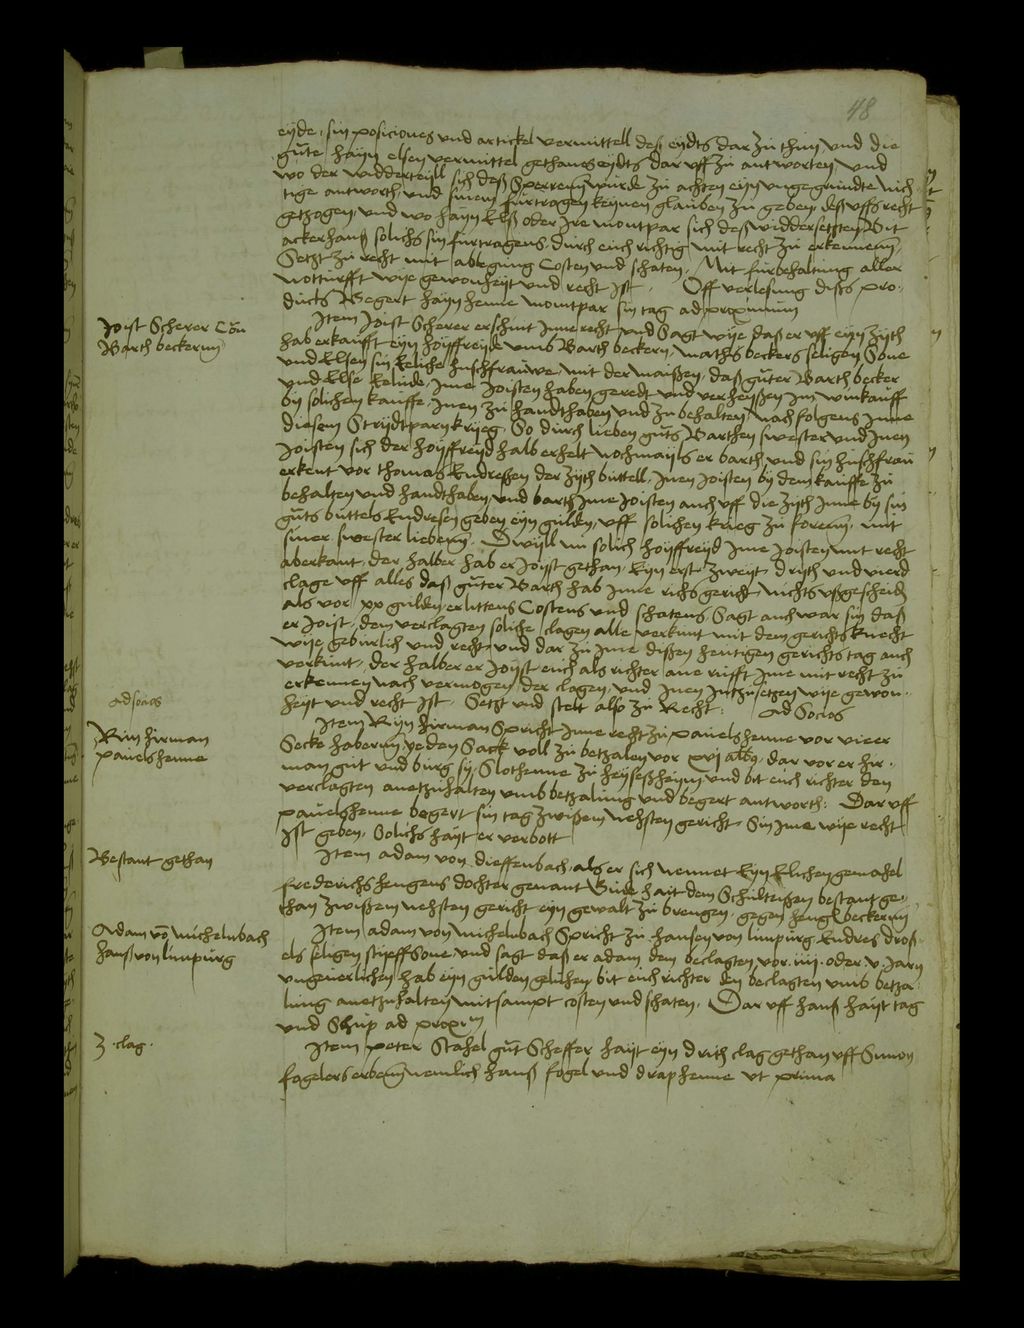 48
eyde, sin posiciones und artickel vermittell deß eydts dar zu thun und die
gute hayn elsen vermittel gethanes eydts dar uff zu antworten, und
wo der widderteyll sich deß Sperren wurde zu achten eyn ungegrundte nich-
tige antworth, und sinem furtragen keynen glauben zu geben, deß uffs recht
getzogen, und wo hayn Elß oder Ire montpar sich deß widdersetzten Bit
ackerhanß solichs sin furtragens, durch euch richtig mit recht zu erkennen,
Setzt zu recht mit ablegung Costen und schaten, Mit furbehaltung aller
notturfft wije gewonheyt und recht Ist. Off verlesung dißs pro-
ducts Begert hayn henne montpar sin tag ad proximum
Joist Scherer Con
Barth beckernn
Item Joist Scherer erschint Inne recht und Sagt wije daß er uff eyn zyth
hab erkaufft eyn hoyffreyde umb Barth beckern, mathis beckers seligen Sone
und Elsen sin Eeliche hußfrauwe, mit der maißen, daß guter Barth becker
und Else Eelude, Ime Joisten haben geredt und verheyßen Im winkauff
by solichen kauffe, Inen zu handthaben und zu behalten, nach folgens Inne
diesem Strydtparn krijeg, So durch lieben guts Barthen swester und Inen
Joisten sich der hoyffreyd halb erhelt nochmayls er barth und sin hußfrau
erkent vor thomas Endreßen der zyth buttell, Inen Joisten by dem kauffe zu
behalten und handthaben, und barth Ime Joisten auch uff die zyth Inne by sin
guts buttels Endresen geben eyn gulden, uff solichen krieg zu foren, mit
siner swester lieben. Dwyll nu solich hoyffreyd Ime Joisten mit recht
aberkant, der halber hab er Joist gethan, Eyn erst zweyt dryth und vierd
clage uff alles daß guter Barth hab Inne richs gericht, nichts ußgescheiden
als vor xx gulden, erlittens Costens und schatens, Sagt auch war sin daß
er Joist, dem verclagten soliche clagen alle verkunt mit dem gerichts knecht
wije geburlich und recht, und dar zu Ime dißen heutigen gerichts tag auch
verkunt, der halber er Joist euch als richter ane rufft Ime mit recht zu
erkennen nach vermogen der clagen, und Inen Intzusetzen wije gewon-
heyt und recht Ist, Setzt und stelt also zu Recht. Ad Socios
ad socios
Ryn hirman
pauels henne
Item Ryn hirman Spricht Inne recht zu pauels henne vor vieer
Secke habern, ye den Sack voll zu betzalen vor xvj albus, dar vor er hir-
man gut und burg sy, Slothenne zu heyseßheym und bit euch richter den
verclagten anetzuhalten umb betzalung und begert antworth. Dar uff
pauelshenne begert sin tag zwißem nehsten gericht, Sin Ime wije recht
Ist geben, Solichs hayt er verbott
Bestant gethan
Item adam von dieffenbach, als er sich nennet Eyn Elichen gemahel
frederichs hengens dochter genant Byde hait dem Schulteißen bestant ge-
than zwißem nehsten gericht eyn gewalt zu brengen, gegen hengk beckernn
Adam von michelnbach
hanß von limpurg
Item adam von michelnbach Spricht zu hansen von limpurg Endres droß-
els seligen stiffSone, und sagt daß er adam dem beclagten vor iiij oder v Jarn
ungeverlichen hab eyn gulden gelichen bit euch richter den beclagten umb betza-
lung anetzuhalten mit sampt costen und schaten. Dar uff hanß hayt tag
und Schup ad proximum
3 clag
Item peter Stahel gut Scheffer hayt eyn drith clag gethan uff Simon
fogelers erben nemlich hanß fogel und drap henne ut prima